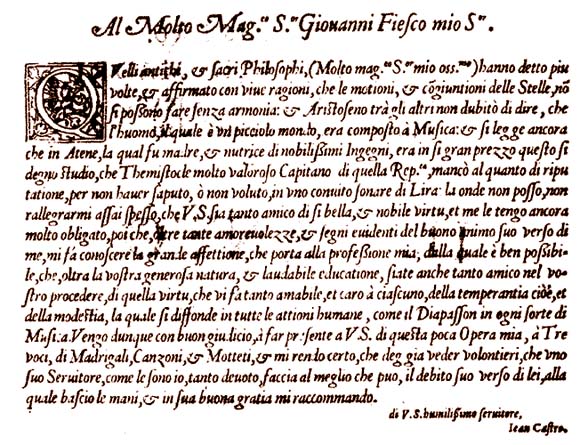 Al Molto Mag.co S.or Giouanni Fiesco mio S.or.
QVelli antichi, & sacri Philosophi, (Molto mag.co S.or mio oss.mo) hanno detto piu
volte, & affirmato con viue ragioni, che le motioni, & cõgiuntioni delle Stelle, nõ
si possono fare senza armonia: & Aristoseno trà gli altri non dubitò di dire, che
l'huomo, il quale è vn picciolo mondo, era composto à Musica: & si legge ancora
che in Atene, la qual fu madre, & nutrice di nobilissimi Ingegni, era in si gran prezzo questo si
degno studio, che Themistocle molto valoroso Capitano di quella Rep.ca, mancò al quanto di ripu
tatione, per non hauer saputo, ò non voluto, in vno conuito sonare di Lira: la onde non posso, non
rallegrarmi assai spesso, che V.S. sia tanto amico di si bella, & nobile virtu, et me le tengo ancora
molto obligato, poi che, oltre tante amoreuolezze, & segni euidenti del buono animo suo verso di
me, mi fa conoscere la grande affettione, che porta alla professione mia; dalla quale è ben possibi-
le, che, oltra la vostra generosa natura, & laudabile educatione, siate anche tanto amico nel vo-
stro procedere, di quella virtu, che vi fà tanto amabile, et caro à ciascuno, della temperantia cioè, et
della modestia, la quale si diffonde in tutte le attioni humane, come il Diapasson in ogni sorte di
Musica. Vengo dunque con buon giudicio, à far presente a V.S. di questa poca Opera mia, à Tre
voci, di Madrigali, Canzoni, & Motteti, & mi rendo certo, che deggia veder volontieri, che vno
suo Seruitore, come le sono io, tanto deuoto, faccia al meglio che puo, il debito suo verso di lei, alla
quale bascio le mani, & in sua buona gratia mi raccommando.
di V.S. humilissimo seruitore,
Iean Castro.